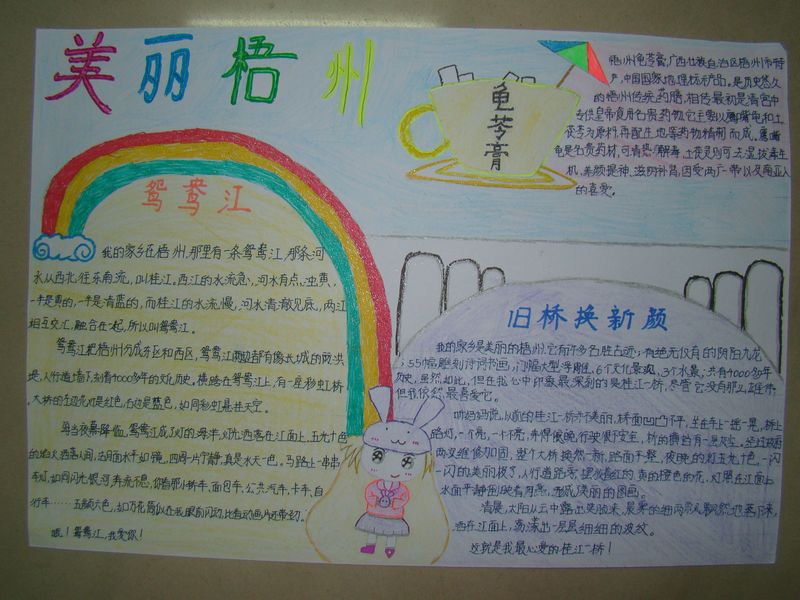 美丽梧州
鸳鸯江
我的家乡在梧州,那里有一条鸳鸯江,那条河
水从西北,往东南流,叫桂江。西江的水流急,河水有点浊黄,
一半是黄的,一半是清蓝的,而桂江的水流慢,河水清澈见底,两江
相互交汇,融合在一起,所以叫鸳鸯江。
鸳鸯江把梧州分成东区和西区,鸳鸯江两边都有像长城的防洪
堤,人行道墙下刻着4000多年的文化历史。横跨在鸳鸯江上,有一座彩虹桥
大桥的左边亮灯是红色,右边是蓝色,如同彩虹悬挂天空。
每当夜幕降临,鸳鸯江成了灯的海洋,灯光洒落在江面上,五光十色
的焰火洒落人间,江月面水平如镜,四周一片宁静,真是水天一色。马路上一串串
车灯,如同闪光银河奔流不息,你看那小轿车、面包车、公共汽车、卡车、自
行车……五颜六色,如万花筒似在我眼前闪动,比看动画片还带劲。
哦!鸳鸯江,我爱你!
龟苓膏
梧州龟苓膏,广西壮族自治区梧州市特
产,中国国家地理标志产品。是历史悠久
的梧州传统药膳,相传最初是清宫中
专供皇帝食用名贵药物。它主要以鹰嘴龟和土
茯苓为原料,再配生地等药物精制而成。鹰嘴
龟是名贵药材,可清热解毒,土茯苓则可去湿,拔毒生
机,养颜提神、滋阴补肾,因受两广一带以及南亚人
的喜爱。
旧桥换新颜
我的家乡是美丽的梧州,它有许多名胜古迹:有绝无仅有的阴阳九龙
;55幅雕刻诗词书画,门幅大型浮雕,6个文化景观,3个水景,共有4000多年
历史,虽然如此,但在我心中印象最深刻的是桂江一桥,尽管它没有那么雄伟,
但我依然最喜爱它。
听妈妈说,以前的桂江一桥并不美丽,桥面凹凸不平,坐在车上一摇一晃,桥上
路灯,一个亮,一个不亮,弄得夜晚行驶很不安全,桥的横拍有一层灰尘。经过政府
两次维修加固,整个大桥焕然一新,路面平整,夜晚的灯五光十色,一闪
一闪的美丽极了,人行道路旁,摆放着红的、黄的橙色的花,灯照在江面上
水面平静倒映着月亮,形成美丽的图画。
清晨,太阳从云中露出笑脸来,晨雾的细雨亮晶飘然地落下来,
洒在江面上,荡漾出一层层细细的波纹。
这就是我最心爱的桂江一桥!